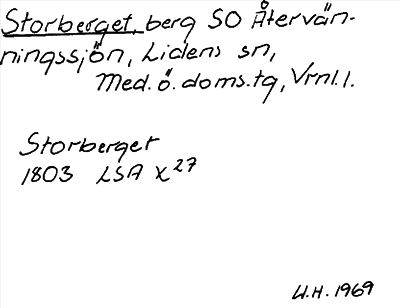 Storberget, berg SO Återvän-
ningssjön, Lidens sn,
Med. ö. doms.tg, Vrnl.l.
Storberget
1803 LSA X27
U.H. 1969